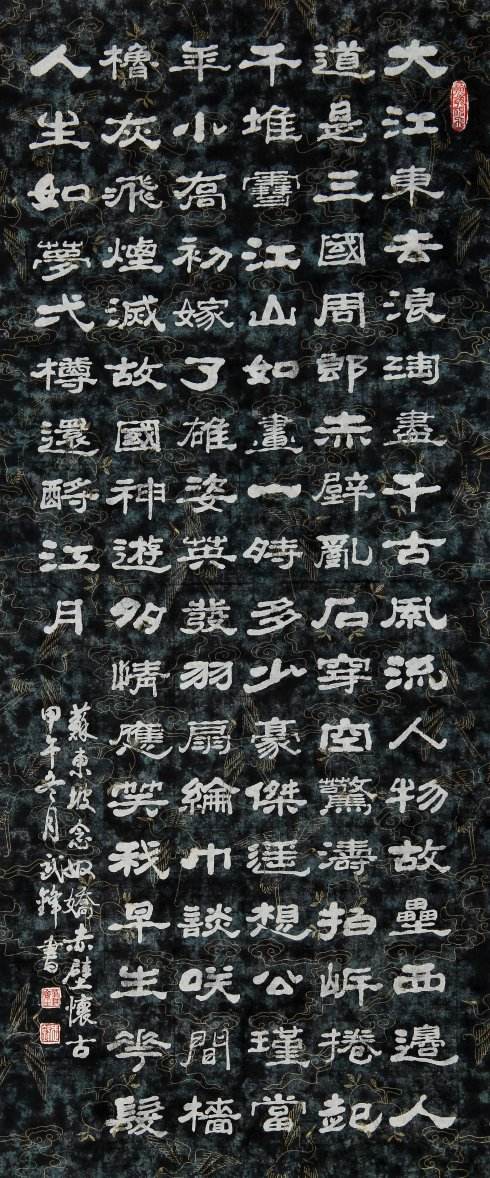 大江東去浪淘盡千古風流人物故壘西邊人
道是三國周郎赤壁亂石穿空驚濤拍岸捲起
千堆雪江山如畫一時多少豪傑遥想公瑾當
年小喬初嫁了雄姿英發羽扇綸巾談咲間檣
櫓灰飛煙滅故國神遊多情應笑我早生華髮
人生如夢弌樽還酹江月
蘇東坡念奴嬌赤壁懷古
甲午冬月武鋒書